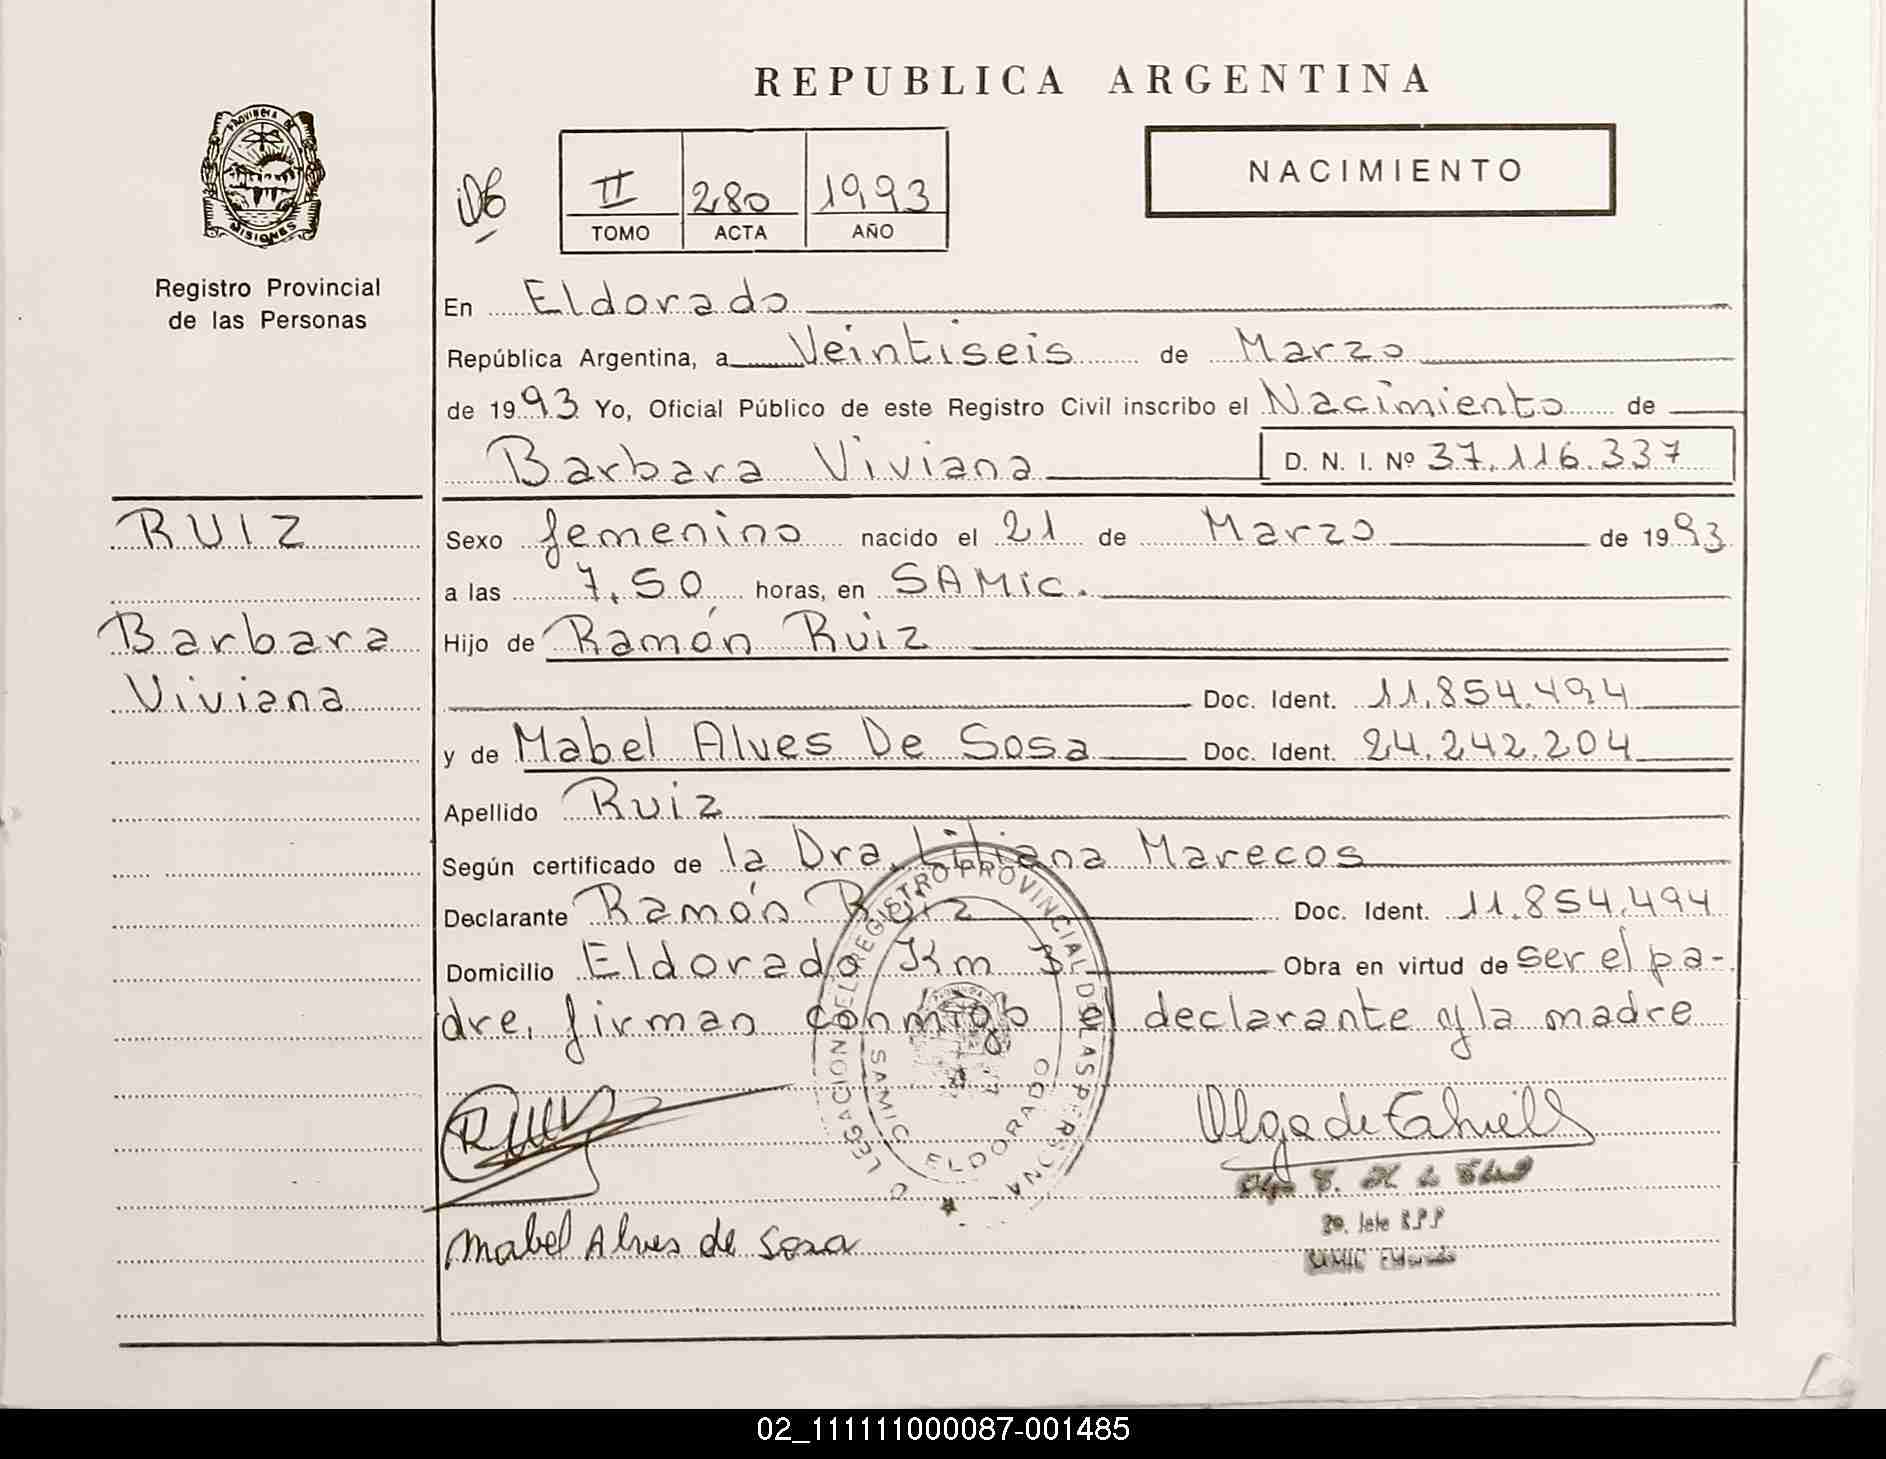 REPUBLICA ARGENTINA
PROVINCIA DE
MISIONES
Registro Provincial
de las Personas
II 280 1993
TOMO ACTA AÑO
NACIMIENTO
En Eldorado
República Argentina, a Veintiseis de Marzo
de 1993 Yo, Oficial Público de este Registro Civil inscribo el Nacimiento de
Barbara Viviana D. N. I. Nº 37.116.337
RUIZ
Barbara
Viviana
Sexo femenino nacido el 21 de Marzo de 1993
a las 7,50 horas, en SAMIC.
Hijo de Ramón Ruiz
Doc. Ident. 11.854.494
y de Mabel Alves De Sosa Doc. Ident. 24.242.204
Apellido Ruiz
Según certificado de la Dra. Liliana Marecos
Declarante Ramón Ruiz Doc. Ident. 11.854.494
Domicilio Eldorado Km 3 Obra en virtud de ser el pa-
dre, firman conmigo el declarante y la madre
DELEGACION DEL REGISTRO PROVINCIAL DE LAS PERSONAS
SAMIC ELDORADO
Ruiz
Olga de
Mabel Alves de Sosa
SAMIC Eldorado
02_111111000087-001485